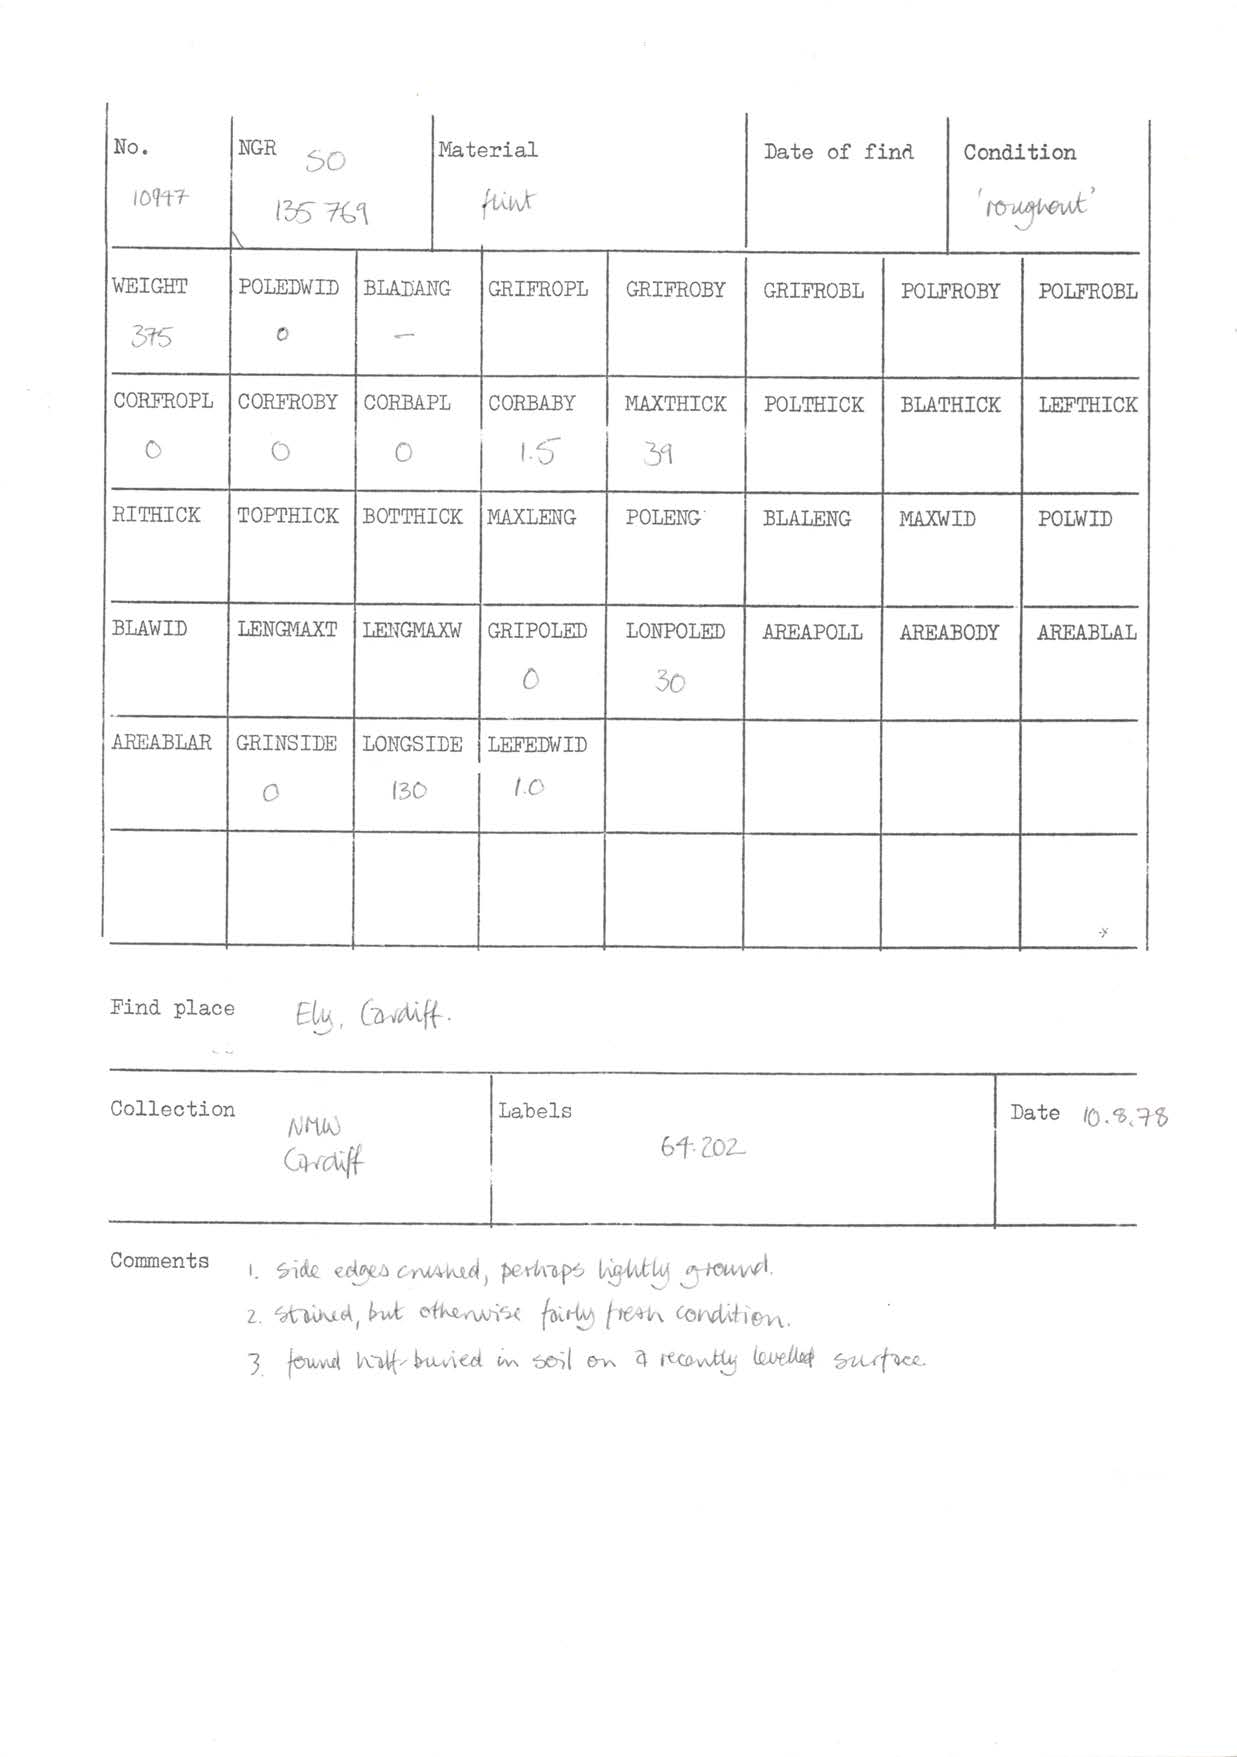 No. NGR SO Material Date of find Condition
10947 135 769 flint 'roughout'
WEIGHT POLEDWID BLADANG GRIFROPL GRIFROBY GRIFROBL POLFROBY POLFROBL
375 0 —
CORFROPL CORFROBY CORBAPL CORBABY MAXTHICK POLTHICK BLATHICK LEFTHICK
0 0 0 1.5 39
RITHICK TOPTHICK BOTTHICK MAXLENG POLENG BLALENG MAXWID POLWID
BLAWID LENGMAXT LENGMAXW GRIPOLED LONPOLED AREAPOLL AREABODY AREABLAL
0 30
AREABLAR GRINSIDE LONGSIDE LEFEDWID
0 130 1.0
Find place Ely, Cardiff.
Collection NMW Labels Date 10.8.78
Cardiff 64.202
Comments 1. side edges crushed, perhaps lightly ground.
2. stained, but otherwise fairly fresh condition.
3. found half-buried in soil on a recently levelled surface.